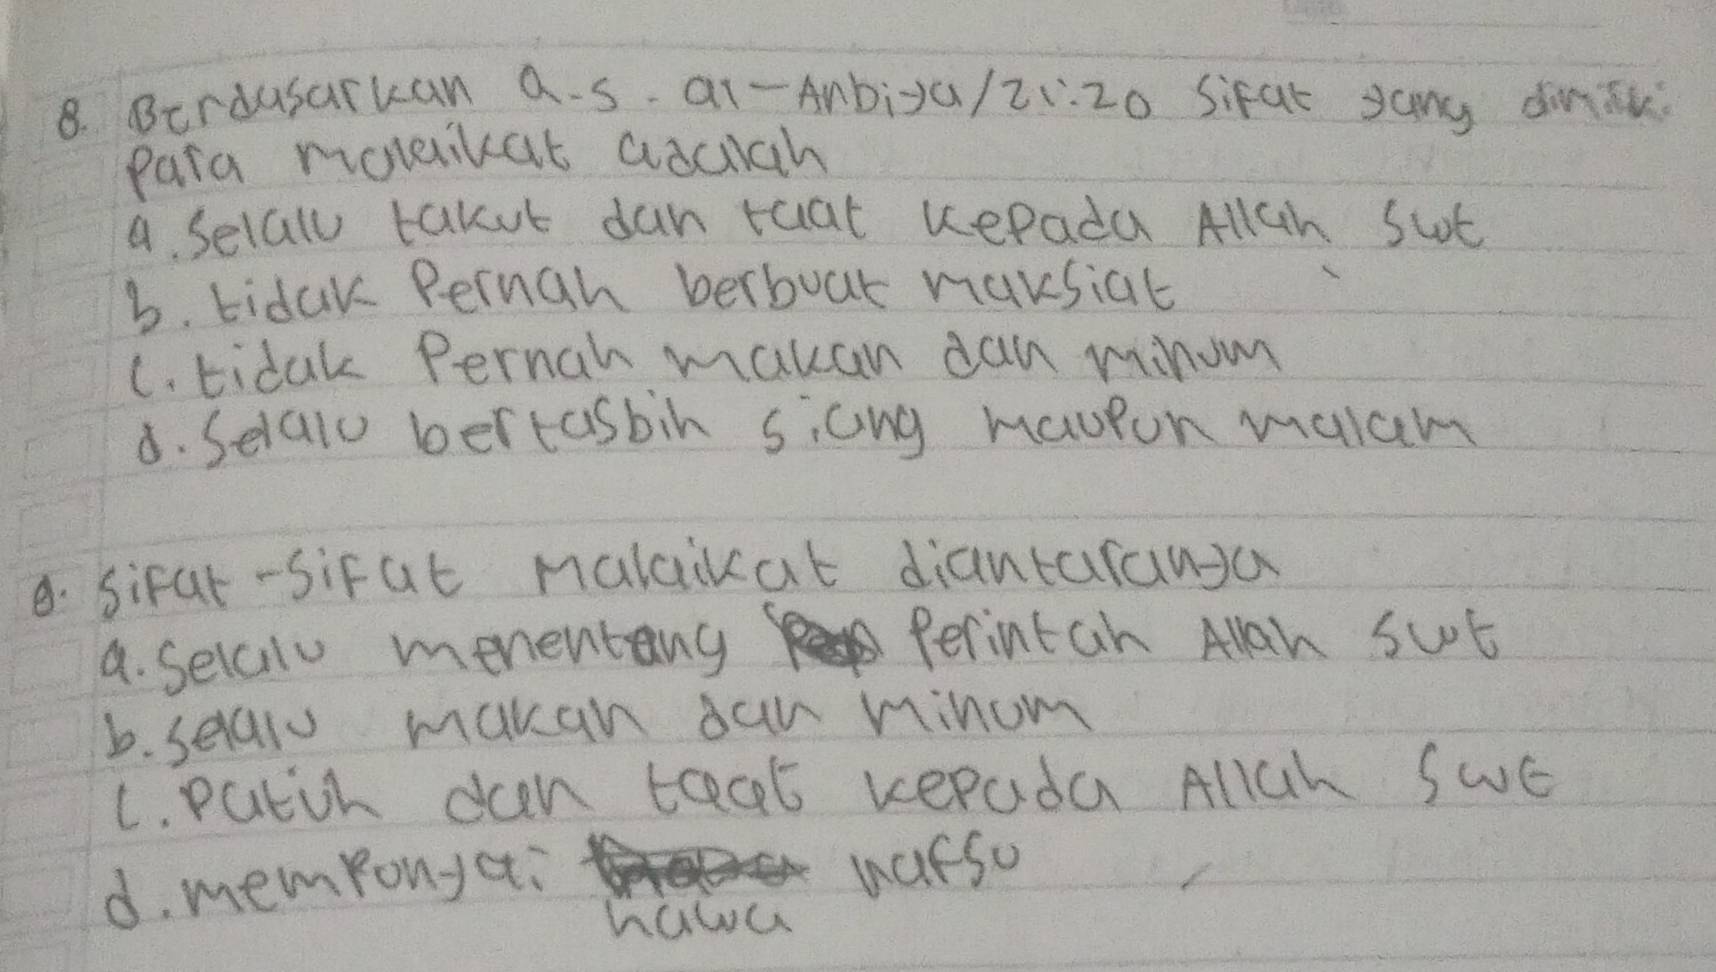 8. Berdasarkan Q.S. al-Anbiya/21:20 sifat yang dimiliki
para malaikat adalah
a. selalu takut dan taat kepada Allah swt
b. tidak Pernah berbuat maksiat
c. tidak Pernah makan dan minum
d. selalu bertasbih siang maupun malam
9. sifat-sifat Malaikat diantaranya
a. selalu menentang Perintah Allah swt
b. selalu makan dan minum
c. patuh dan taat kepada Allah swt
d. mempunyai nafsu
hawa